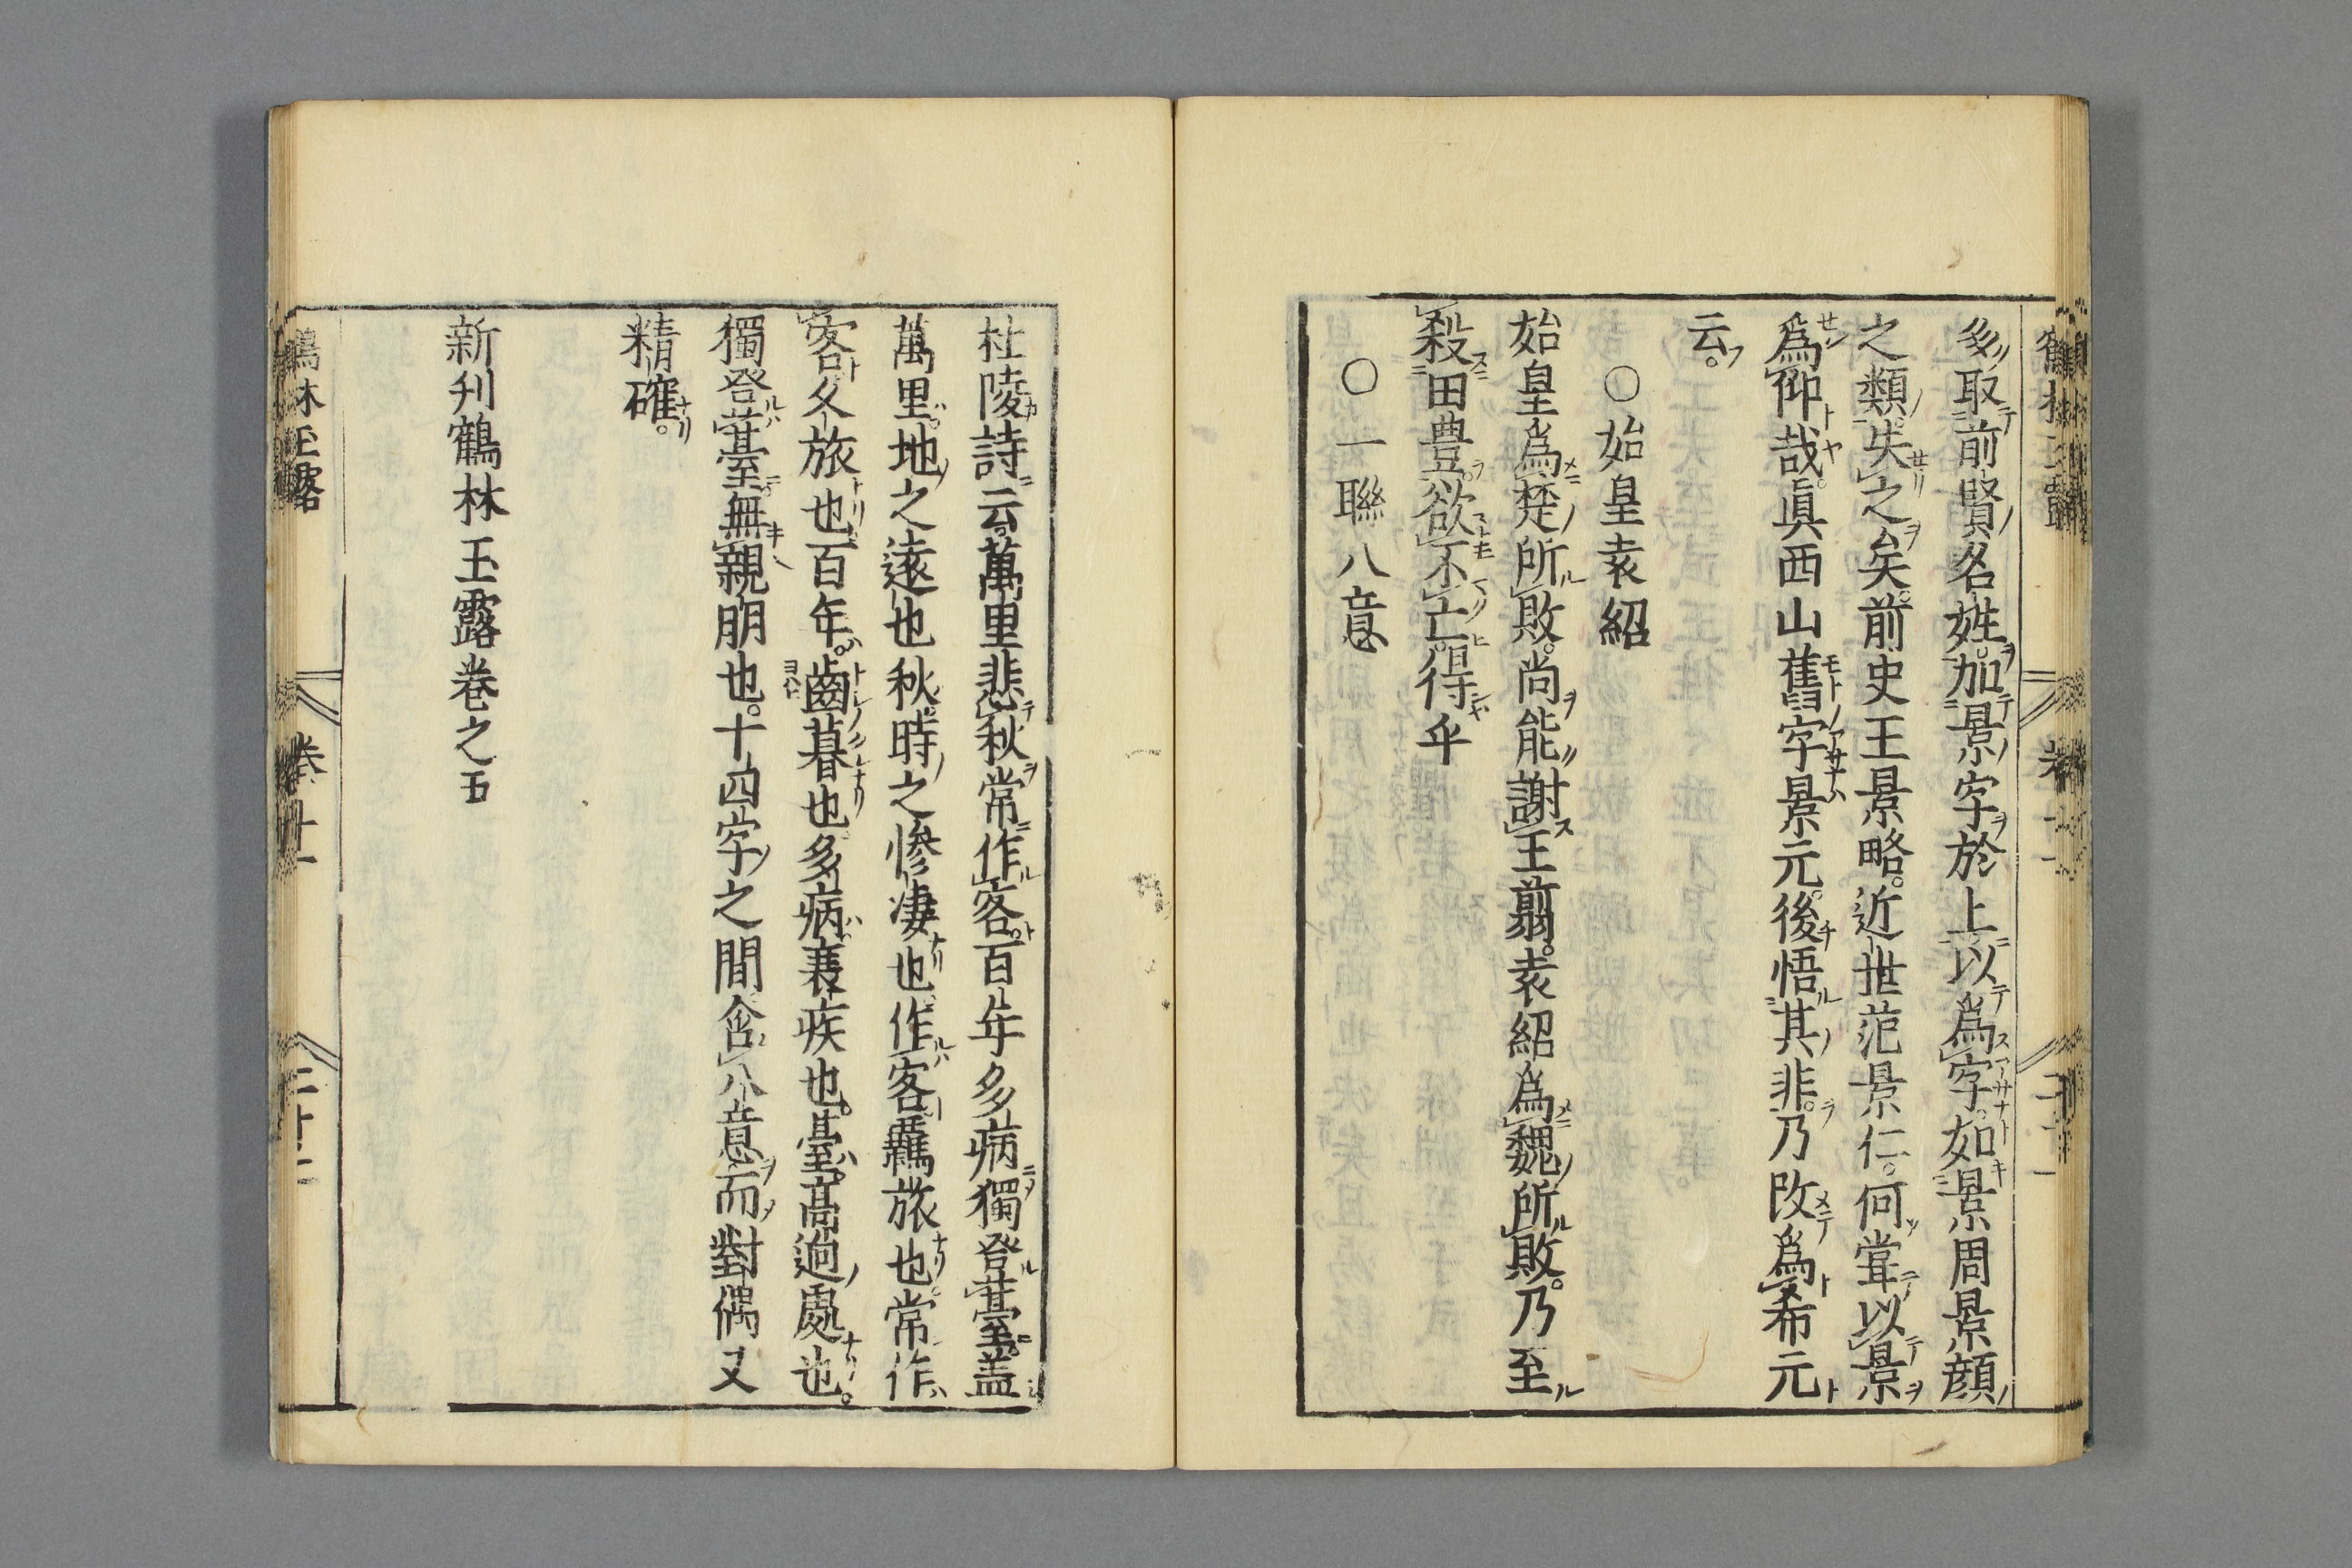 多取前賢名姓。加景字於上以爲字。如景周景顔
之類。失之矣。前史王景略。近世范景仁。何甞以景
爲仰哉。眞西山舊字景元。後悟其非。乃改爲希元
云。
○始皇袁紹
始皇爲楚所敗。尚能謝王翦。袁紹爲魏所敗。乃至
殺田豊。欲不亡。得乎
○一聯八意
杜陵詩云。萬里悲秋常作客。百年多病獨登臺。盖
萬里。地之遠也秋。時之慘凄也。作客羈旅也。常作
客久旅也百年。齒暮也多病。衰疾也。臺。高逈處也。
獨登臺無親朋也。十四字之間含八意。而對偶又
精確。
新刋鶴林玉露卷之五
鶴林玉露 卷十一 二十二